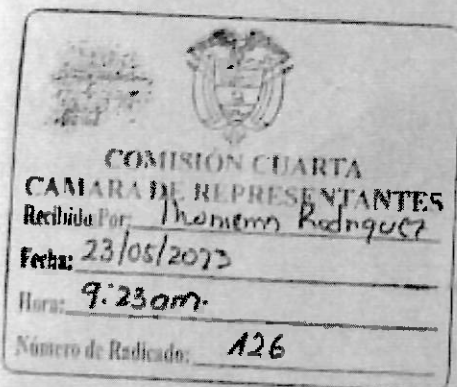 COMISIÓN CUARTA
CAMARA DE REPRESENTANTES
Recibido Por: Rodriguez
Fecha: 23/05/2023
Hora: 9:23 am.
Número de Radicado: 126